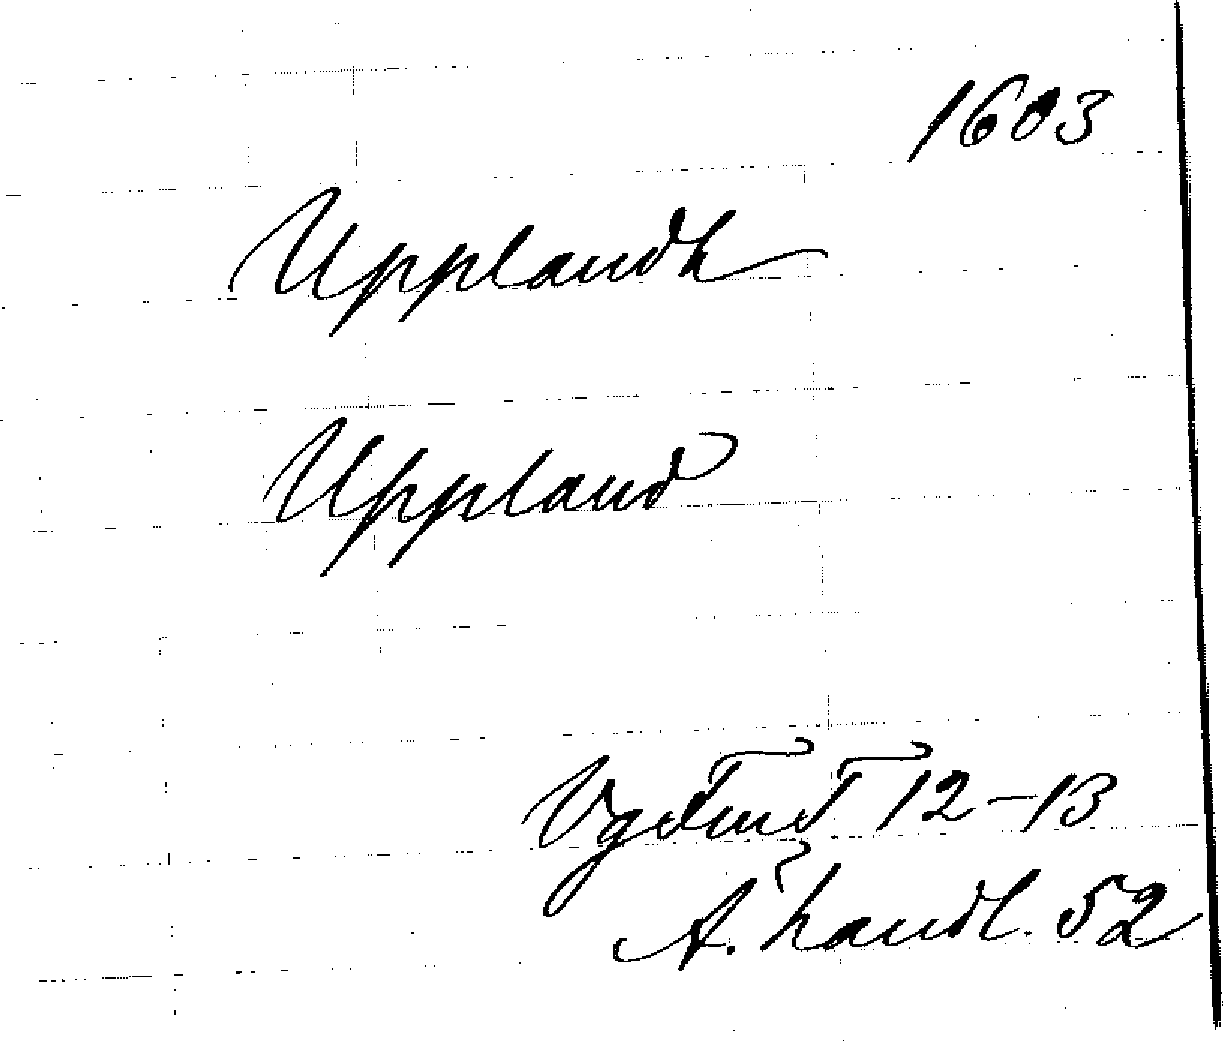 1603
Upplandh
Uppland
12-13
A. handl. 52